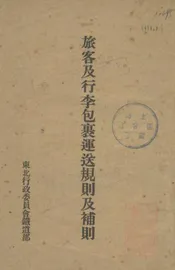 旅客及行李包裹運送規則及補則
東北行政委員會鐵道部